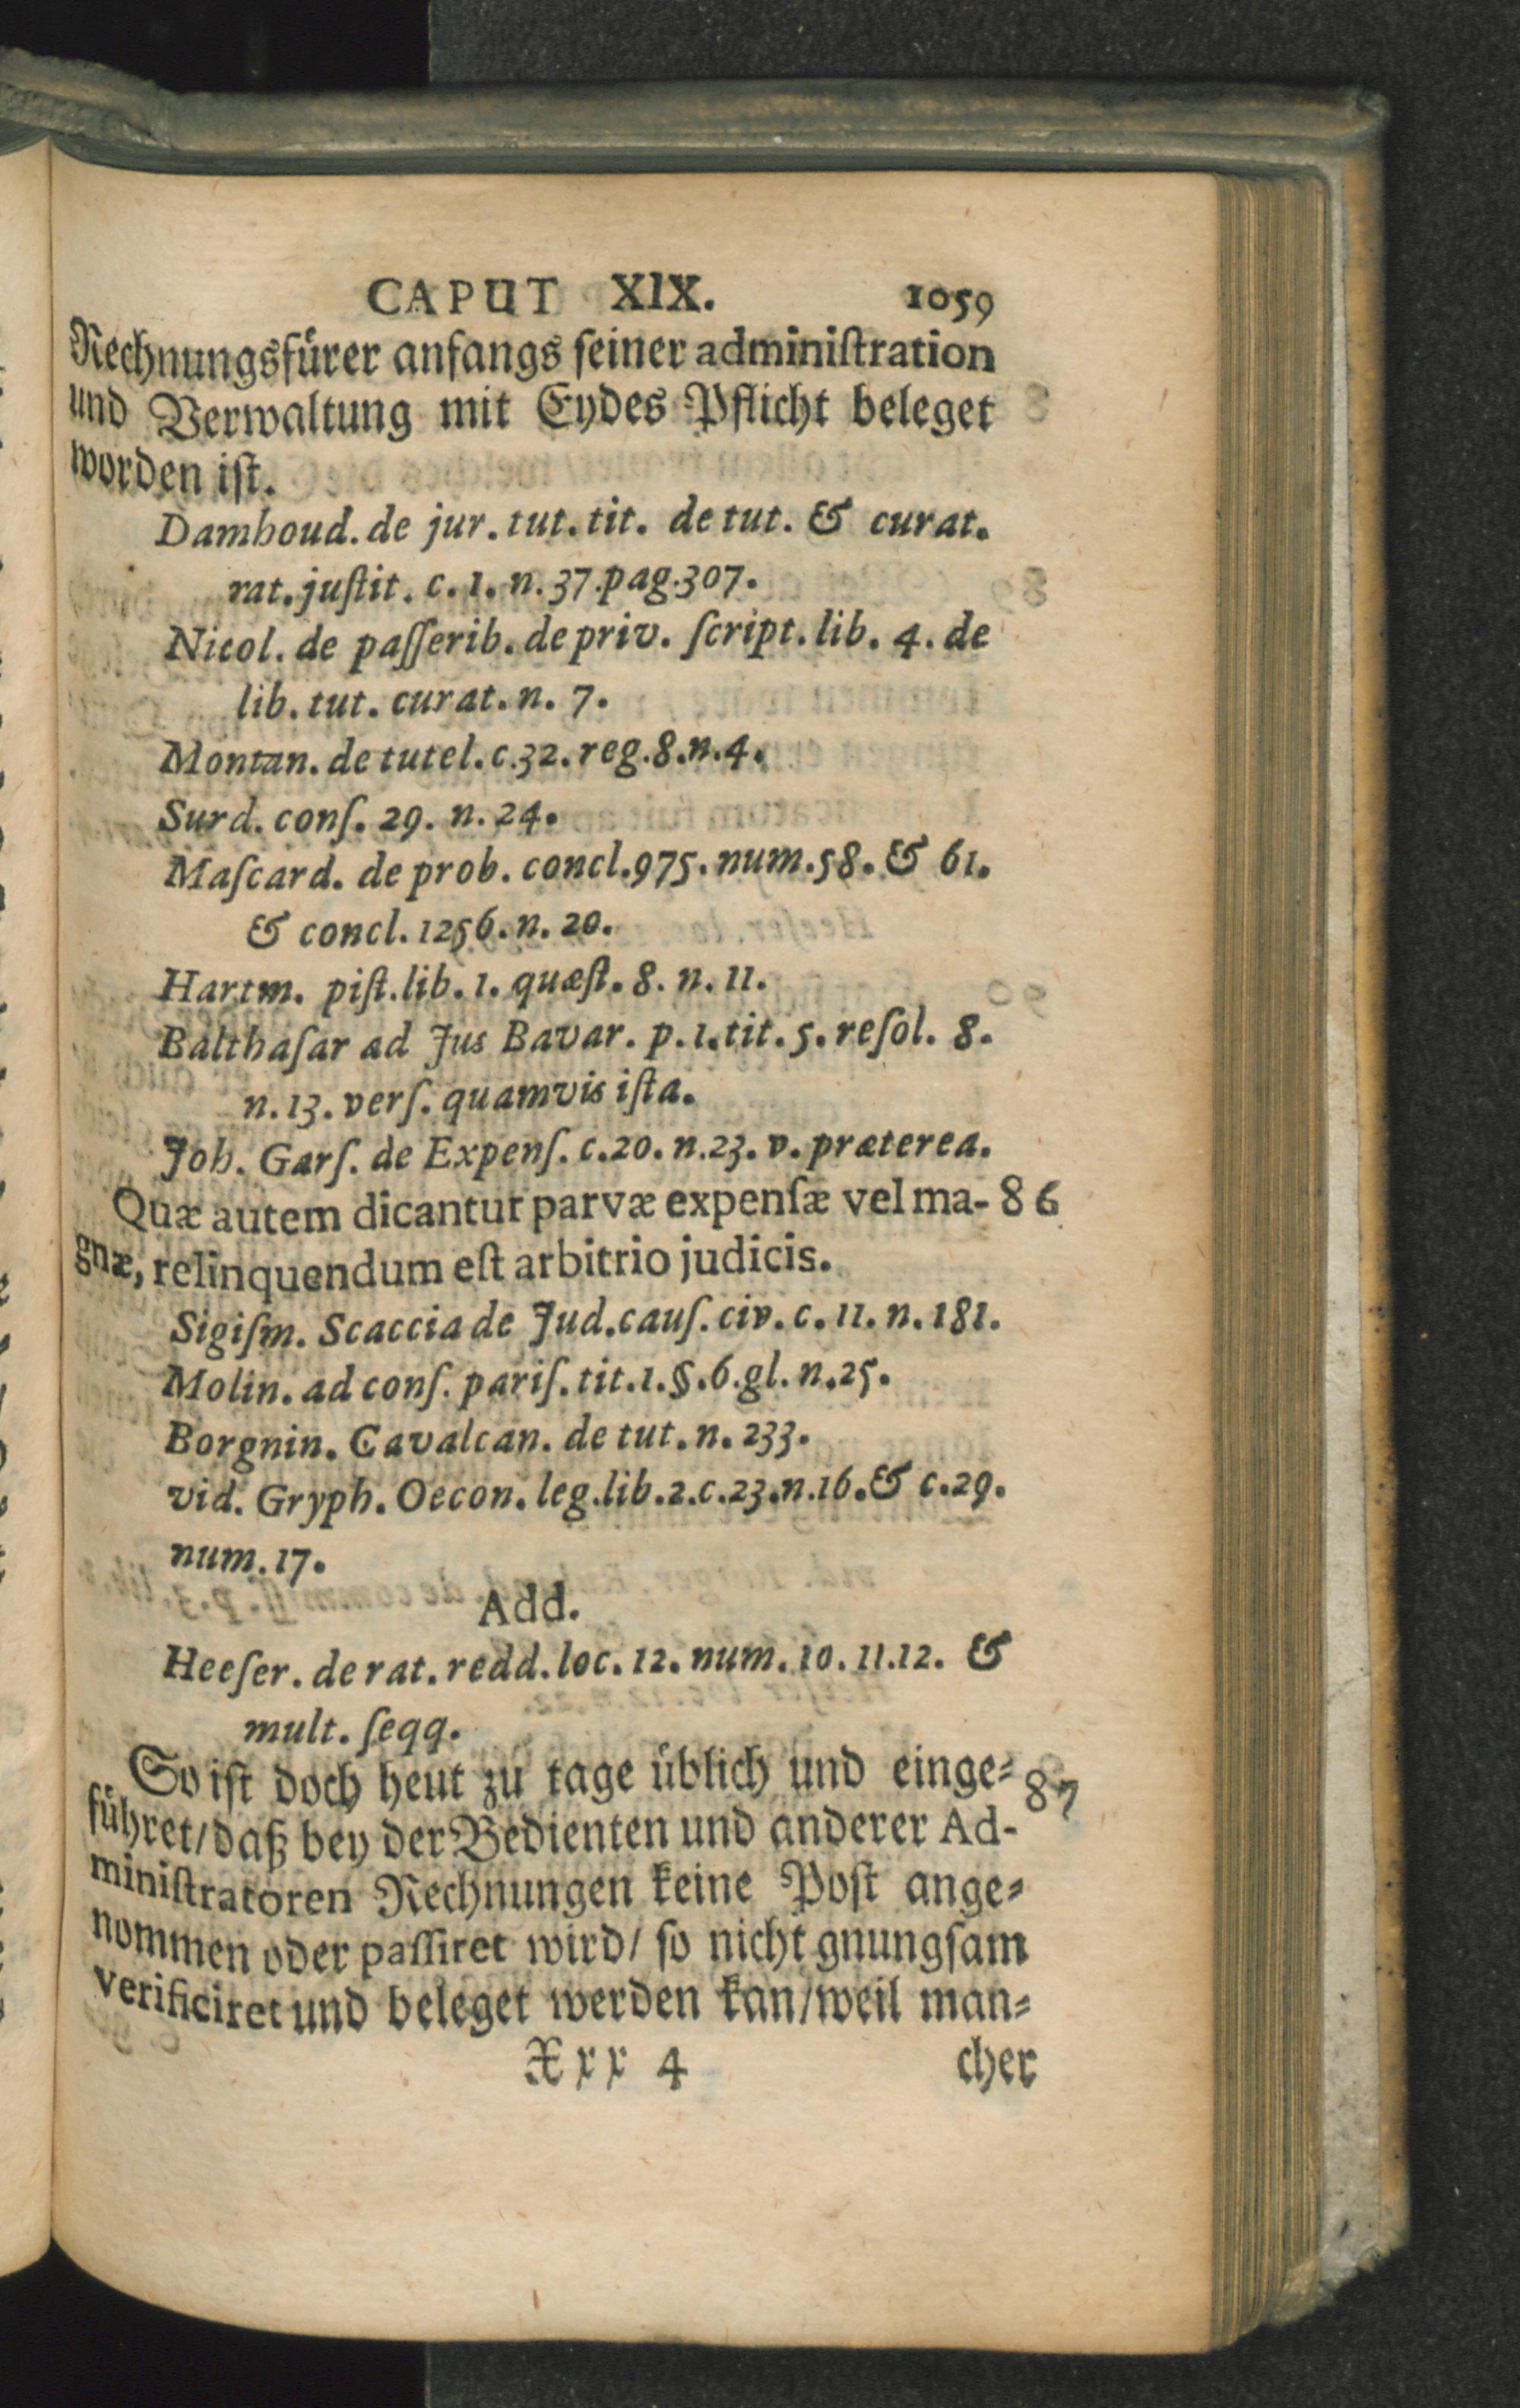 CAPUT XIX. 1059
Rechnungsfürer anfangs ſeiner adminiſtration
und Verwaltung mit Eydes Pflicht beleget
worden iſt.
Damhoud. de jur. tut. tit. de tut. & curat.
rat. juſtit. c. 1. n. 37. pag. 307.
Nicol. de paſſerib. de priv. ſcript. lib. 4. de
lib. tut. curat. n. 7.
Montan. de tutel. c. 32. reg. 8. n. 4.
Surd. conſ. 29. n. 24.
Maſcard. de prob. concl. 975. num. 58. & 61.
& concl. 1256. n. 20.
Hartm. piſt. lib. 1. quæſt. 8. n. 11.
Balthaſar ad Jus Bavar. p. 1. tit. 5. reſol. 8.
n. 13. verſ. quamvis iſta.
Joh. Garſ. de Expenſ. c. 20. n. 23. v. præterea.
Quæ autem dicantur parvæ expenſæ vel ma- 86
gnæ, relinquendum eſt arbitrio judicis.
Sigiſm. Scaccia de Jud. cauſ. civ. c. 11. n. 181.
Molin. ad conſ. pariſ. tit. 1. §. 6. gl. n. 25.
Borgnin. Cavalcan. de tut. n. 233.
vid. Gryph. Oecon. leg. lib. 2. c. 23. n. 16. & c. 29.
num. 17.
Add.
Heeſer. de rat. redd. loc. 12. num. 10. 11. 12. &
mult. ſeqq.
So iſt doch heut zu tage üblich und einge⸗ 87
führet/daß bey der Bedienten und anderer Ad-
miniſtratoren Rechnungen keine Poſt ange⸗
nommen oder paſſiret wird/ ſo nicht gnungſam
verificiret und beleget werden kan/weil man⸗
Xxx 4 cher